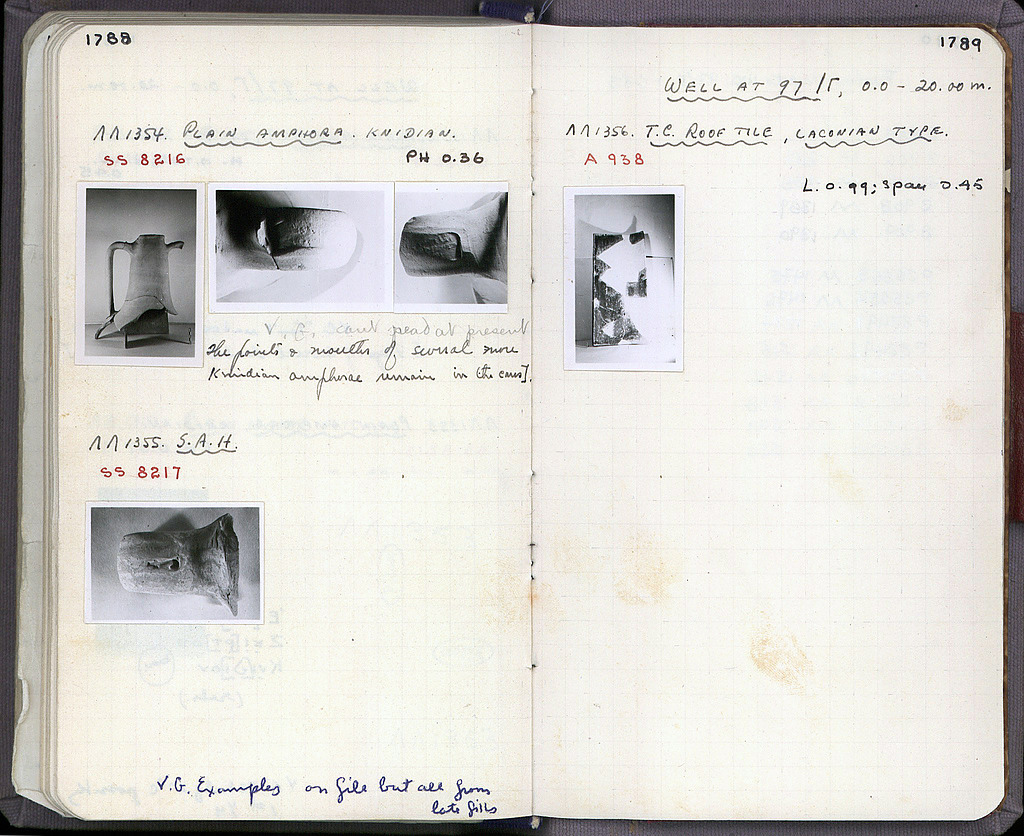 1788
ΛΛ 1354. PLAIN AMPHORA. KNIDIAN.
SS 8216 PH 0.36
V.G., can't read at present
The points & mouths of several more
Knidian amphorae remain in the cans].
ΛΛ 1355. S.A.H.
SS 8217
V.G. Examples on file but all from
late fills
1789
WELL AT 97/Γ, 0.0 - 20.00 m.
ΛΛ 1356. T.C. ROOF TILE, LACONIAN TYPE.
A 938
L. 0.99; span 0.45